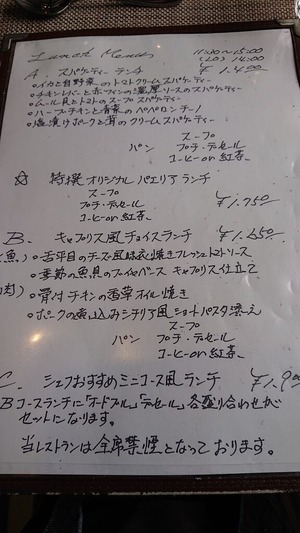 Lunch Menu 11:30〜15:00
(LO) 14:00
A. スパゲティー ランチ ¥1.400
○イカと自野菜のトマトクリームスパゲティー
○チキンレバーと赤ワインの濃厚ソースのスパゲティー
○ムール貝とトマトのスープスパゲティー
○ハーブチキンと青菜のペペロンチーノ
○塩漬けポークと茸のクリームスパゲティー
スープ
パン プチ・デセール
コーヒーor紅茶
☆ 特撰オリジナルパエリアランチ
スープ
プチ・デセール ¥1.750
コーヒーor紅茶
B. キャプリス風チョイスランチ ¥1.650
(魚) ○舌平目のチーズ風味衣焼きフレッシュトマトソース
○季節の魚貝のブイヤベース キャプリス仕立て
肉) ○骨付チキンの香草オイル焼き
○ポークの煮込みシチリア風ショートパスタ添え
スープ
パン プチ・デセール
コーヒーor紅茶
C. シェフおすすめミニコース風ランチ ¥1.9
Bコースランチに「オードブル」「デセール」各盛り合わせが
セットになります。
当レストランは全席禁煙となっております。